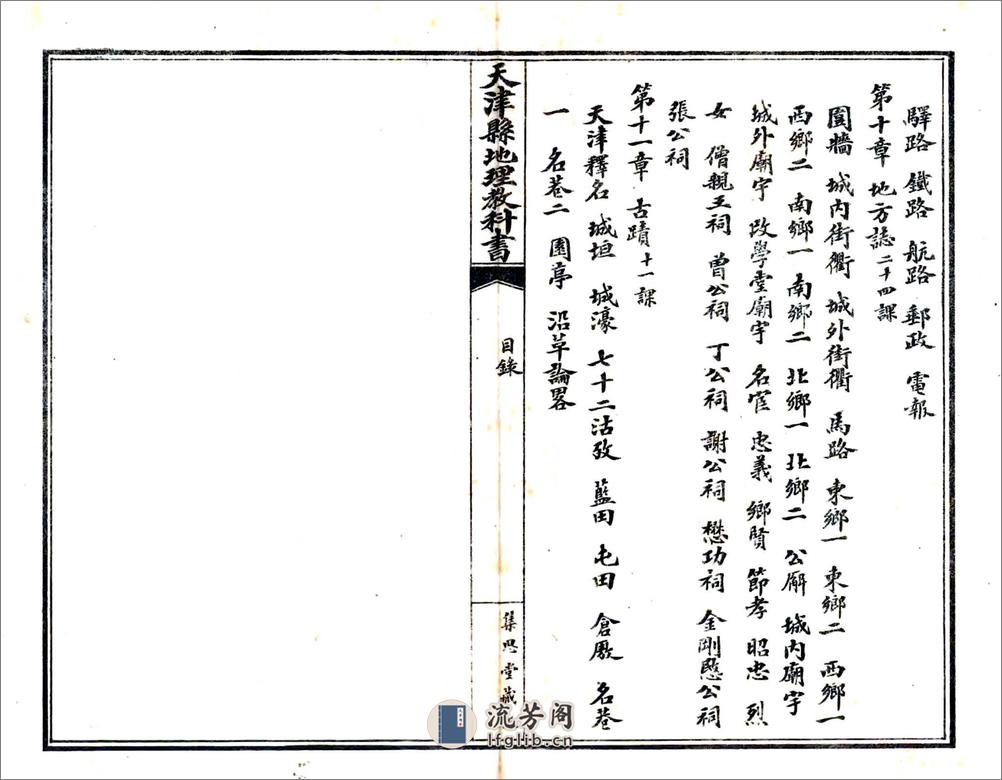 驛路 鐵路 航路 郵政 電報
第十章 地方誌 二十四課
圍墻 城內街衢 城外街衢 馬路 東鄉一 東鄉二 西鄉一
西鄉二 南鄉一 南鄉二 北鄉一 北鄉二 公廨 城內廟宇
城外廟宇 改學堂廟宇 名宦 忠義 鄉賢 節孝 昭忠 烈
女 僧親王祠 曾公祠 丁公祠 謝公祠 懋功祠 金剛愍公祠
張公祠
第十一章 古蹟 十一課
天津釋名 城垣 城濠 七十二沽攷 藍田 屯田 倉廒 名巷
一 名巷二 園亭 沿革論畧
天津縣地理教科書
目錄
集思堂藏
流芳阁
lfglib.cn